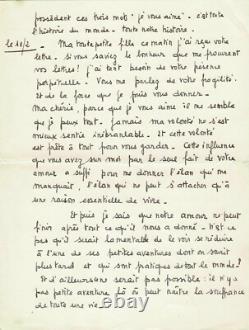 président ces trois mots "je vous aime". c'est toute
l'histoire du monde. toute notre histoire.
le 10/2 - Ma toute petite fille ce matin j'ai reçu votre
lettre. si vous saviez le bonheur que me procurent
vos lettres! j'ai tant besoin de votre présence
perpétuelle. Vous me parlez de votre fragilité
et de la force que je puis vous donner.
Ma chérie, parce que vous je vous aime il me semble
que je peux tout. Jamais ma volonté ne s'est
mieux sentie inébranlable. Et cette volonté
est prête à tout pour vous garder. Cette influence
que vous avez sur moi par le seul fait de votre
amour a suffi pour me donner l'élan qui me
manquait, l'élan qui ne peut s'attacher qu'à
une raison essentielle de vivre.
Et puis je sais que notre amour ne peut
finir après tout ce qu'il nous a donné. n'est ce
pas qu'il serait lamentable de le voir se réduire
à l'une de ses petites aventures dont on sourit
plus tard et qui sont pratiques de tout le monde?
Et d'ailleurs ne serait pas possible: il n'y a
pas petite aventure là où peut naître la souffrance
de toute une vie.